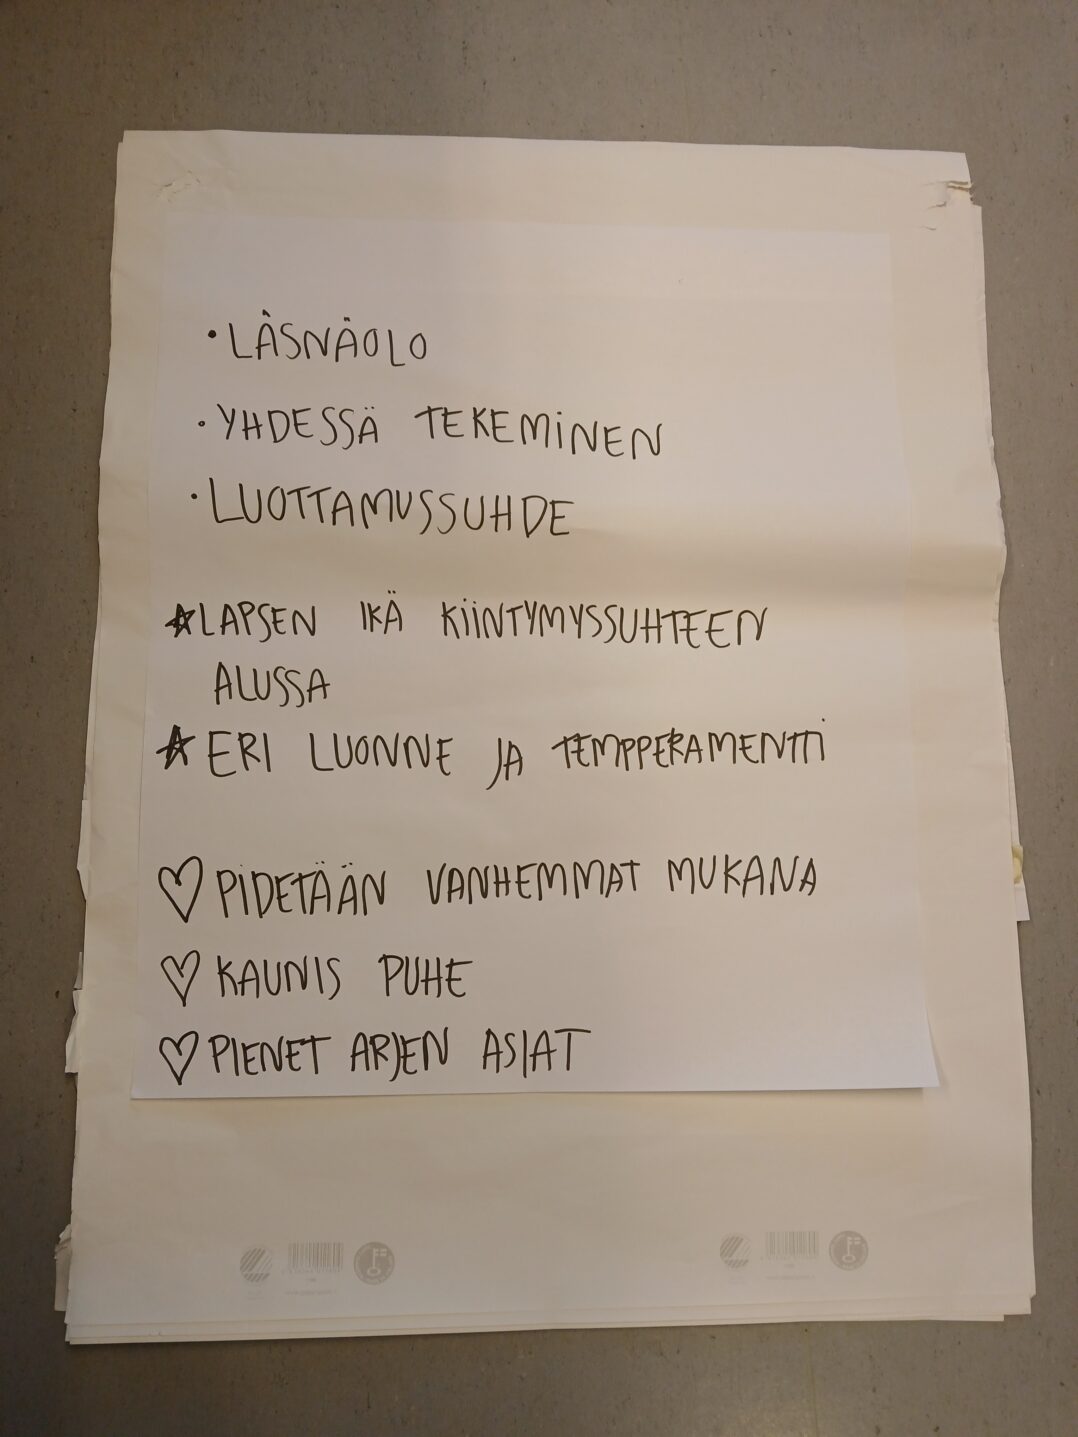 • LÄSNÄOLO
• YHDESSÄ TEKEMINEN
• LUOTTAMUSSUHDE
★ LAPSEN IKÄ KIINTYMYSSUHTEEN
ALUSSA
★ ERI LUONNE JA TEMPPERAMENTTI
♡ PIDETÄÄN VANHEMMAT MUKANA
♡ KAUNIS PUHE
♡ PIENET ARJEN ASIAT